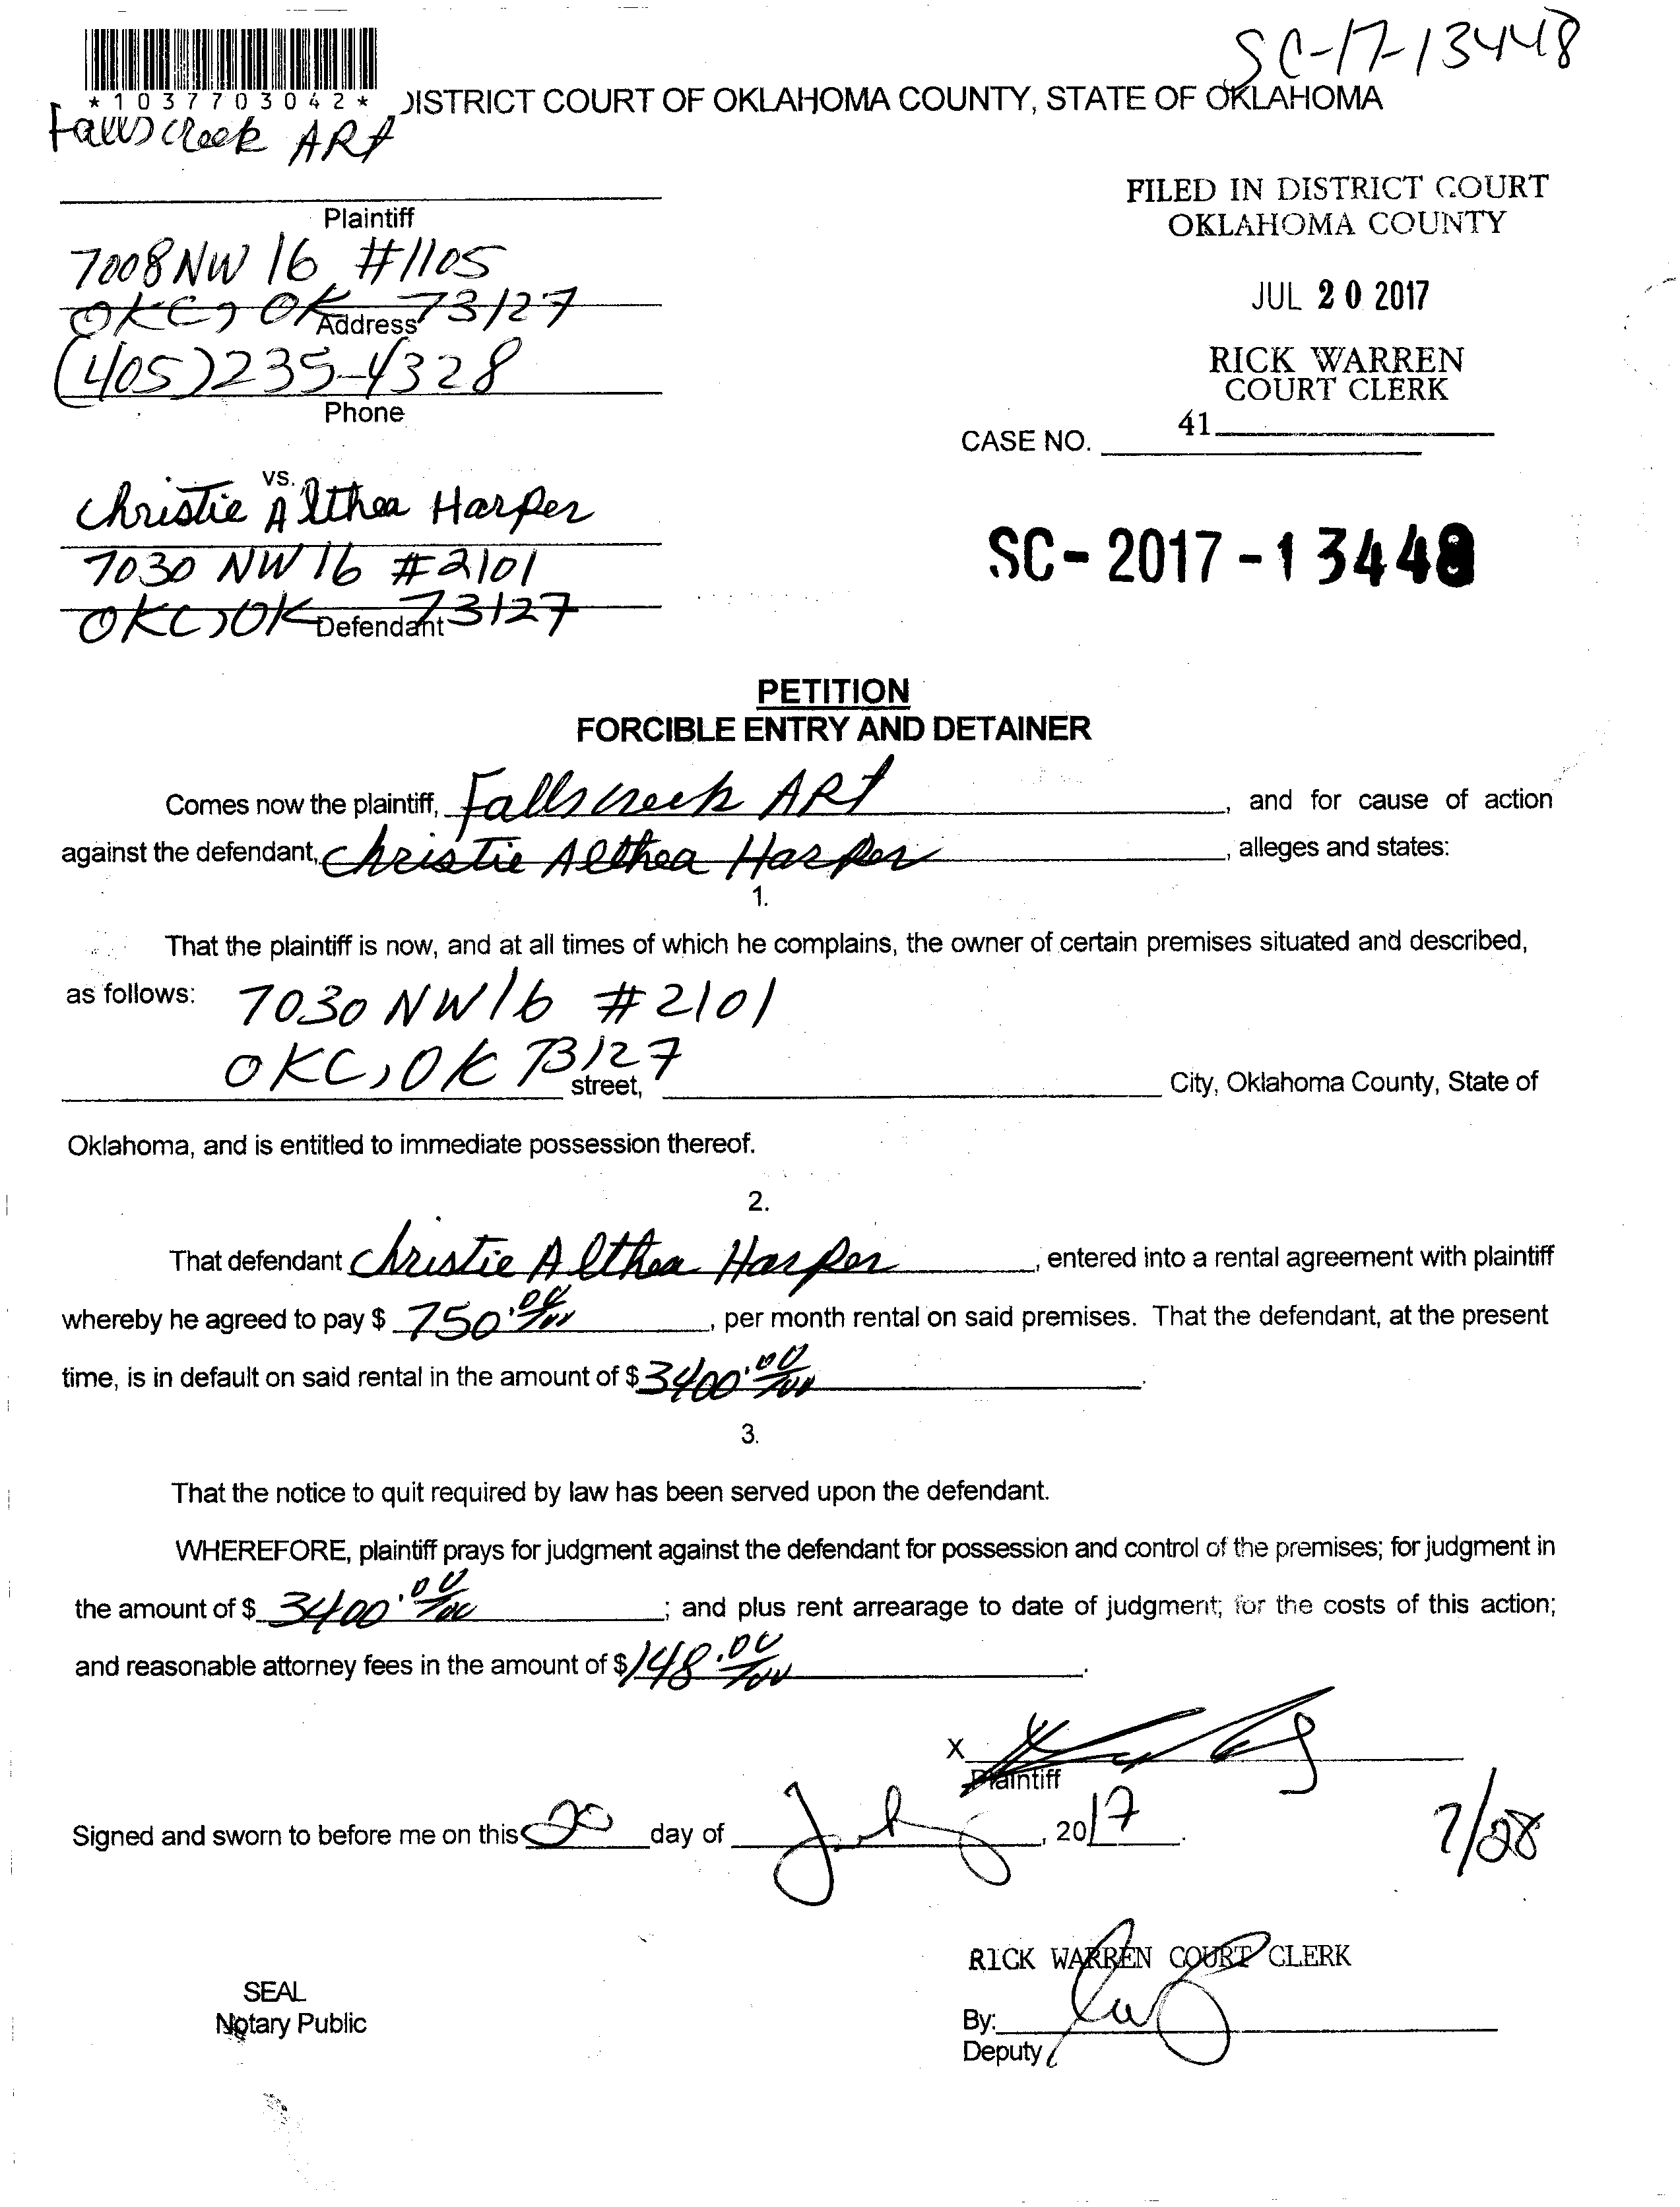 SC-17-13448
*1037703042*
DISTRICT COURT OF OKLAHOMA COUNTY, STATE OF OKLAHOMA
Fallscreek ARt
Plaintiff
FILED IN DISTRICT COURT
OKLAHOMA COUNTY
7008 NW 16 #1105
OKC, OK 73127
Address
JUL 20 2017
(405) 235-4328
Phone
RICK WARREN
COURT CLERK
41
CASE NO.
vs.
Christie Althea Harper
7030 NW 16 #2101
OKC, OK 73127
Defendant
SC-2017-13448
PETITION
FORCIBLE ENTRY AND DETAINER
Comes now the plaintiff, Fallscreek ARt, and for cause of action
against the defendant, Christie Althea Harper, alleges and states:
1.
That the plaintiff is now, and at all times of which he complains, the owner of certain premises situated and described,
as follows: 7030 NW 16 #2101
OKC, OK 73127
street, City, Oklahoma County, State of
Oklahoma, and is entitled to immediate possession thereof.
2.
That defendant Christie Althea Harper, entered into a rental agreement with plaintiff
whereby he agreed to pay $ 750.00/100, per month rental on said premises. That the defendant, at the present
time, is in default on said rental in the amount of $ 3400.00/100.
3.
That the notice to quit required by law has been served upon the defendant.
WHEREFORE, plaintiff prays for judgment against the defendant for possession and control of the premises; for judgment in
the amount of $ 3400.00/100; and plus rent arrearage to date of judgment; for the costs of this action;
and reasonable attorney fees in the amount of $ 148.00/100.
X
Plaintiff
Signed and sworn to before me on this 20 day of July, 2017.
7/28
RICK WARREN COURT CLERK
SEAL
Notary Public
By:
Deputy